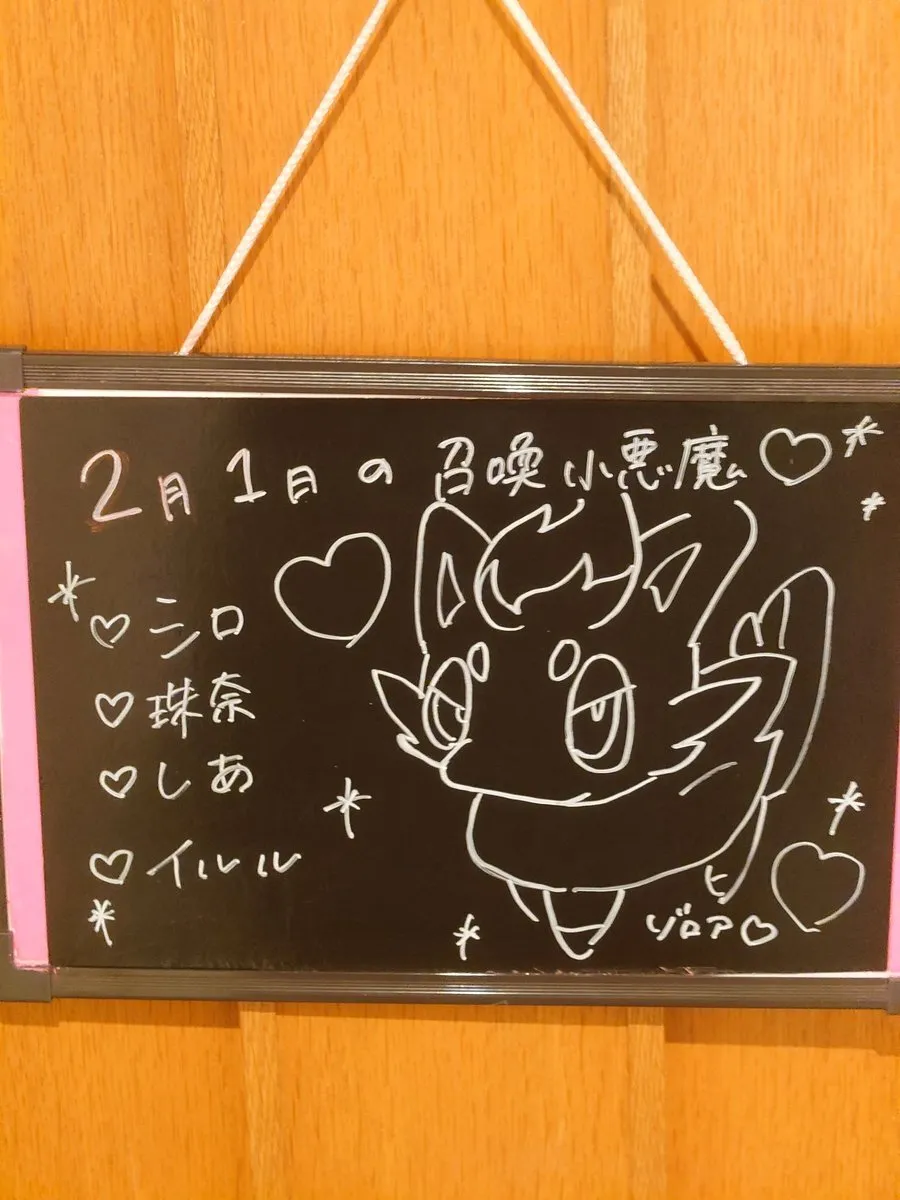 2月1日の召喚小悪魔♡
♡シロ
♡珠奈
♡しあ
♡イルル
ゾロア♡